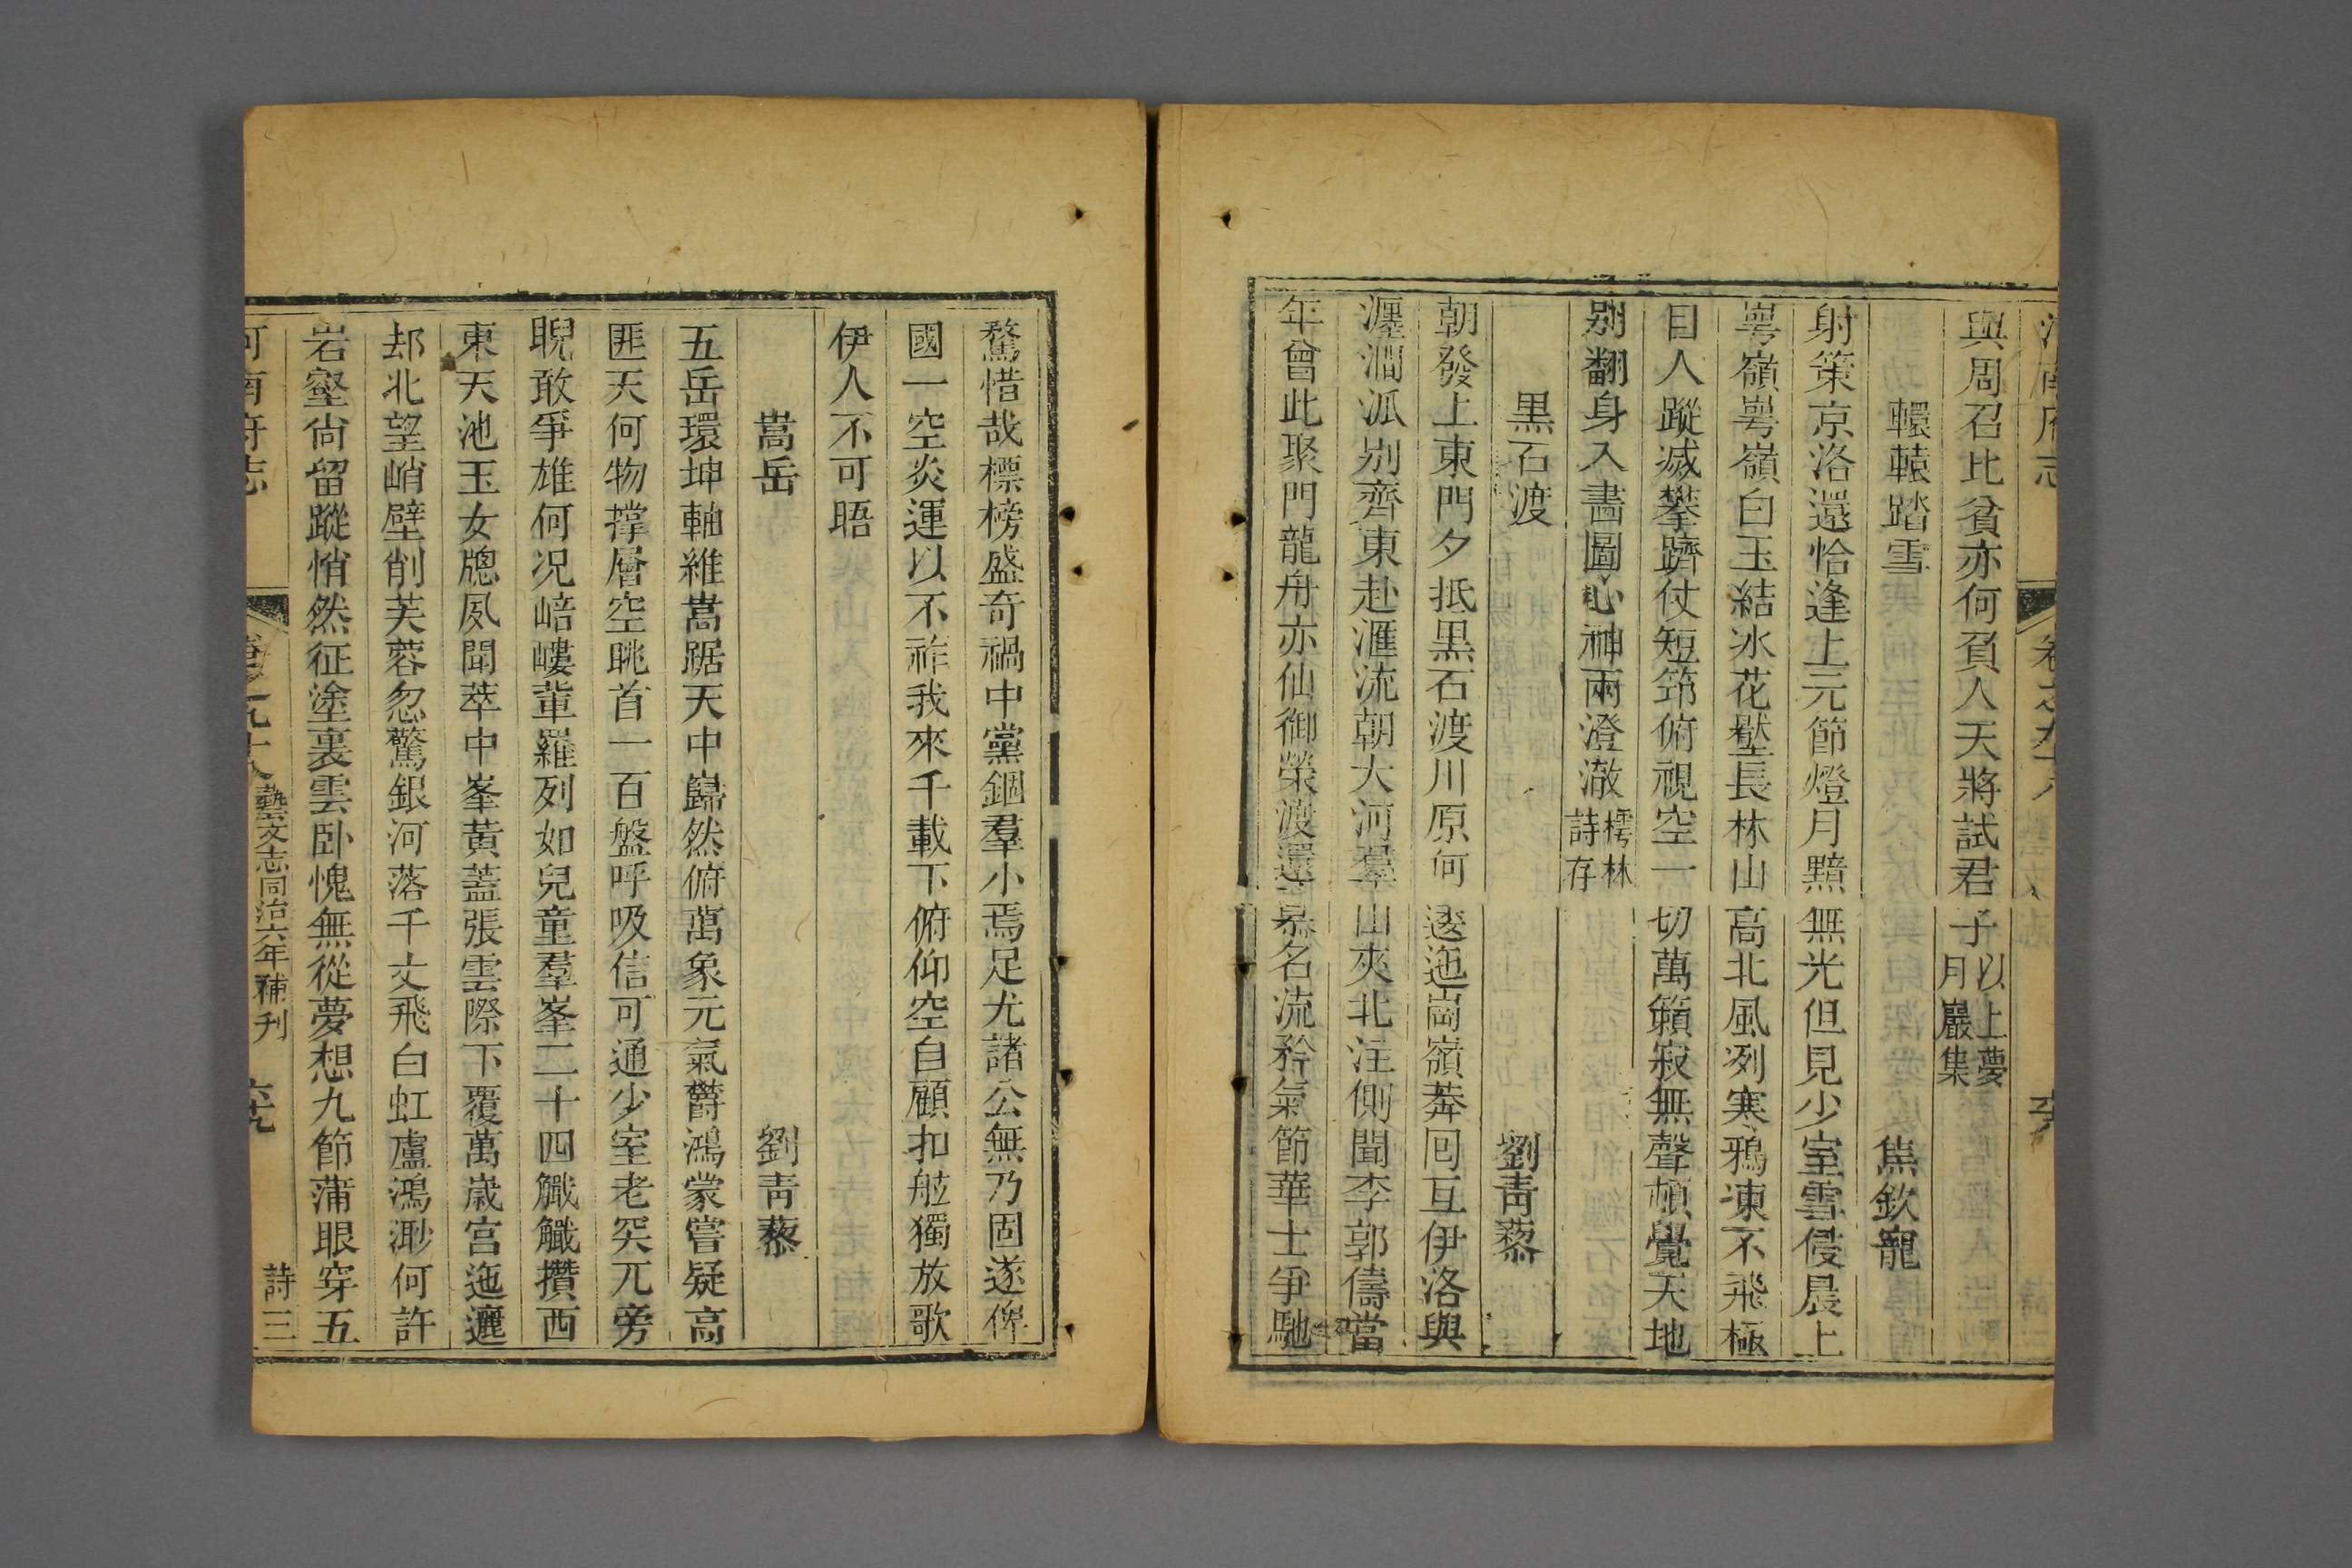 河南府志 卷之九十八
與周召比貧亦何負人天將試君子以上夢月巖集
轘轅踏雪 焦欽寵
射策京洛還恰逢上元節燈月黯無光但見少室雪侵晨上
崿嶺崿嶺白玉結冰花壓長林山高北風冽寒鴉凍不飛極
目人蹤滅攀躋仗短筇俯視空一切萬籟寂無聲頓覺天地
别翻身入畵圖心神兩澄澈樗林詩存
黒石渡 劉青藜
朝發上東門夕抵黒石渡川原何逶迤崗嶺莽回互伊洛與
瀍澗派别齊東赴滙流朝大河羣山夾北注側聞李郭儔當
年曾此聚門龍舟亦仙御榮渡還慕名流矜氣節華士爭馳
騖惜哉標榜盛奇禍中黨錮羣小焉足尤諸公無乃固遂俾
國一空炎運以不祚我來千載下俯仰空自顧扣舷獨放歌
伊人不可晤
嵩岳 劉青藜
五岳環坤軸維嵩踞天中巋然俯萬象元氣欝鴻蒙嘗疑高
匪天何物撑層空眺首一百盤呼吸信可通少室老突兀旁
睨敢爭雄何况嵣嶁輩羅列如兒童羣峯二十四觿觿攢西
東天池玉女牕夙聞萃中峯黄蓋張雲際下覆萬嵗宫迤邐
却北望峭壁削芙蓉忽驚銀河落千丈飛白虹盧鴻渺何許
岩壑尙留蹤悄然征塗裏雲卧愧無從夢想九節蒲眼穿五
河南府志 卷之九十八 藝文志同治六年補刋 詩三